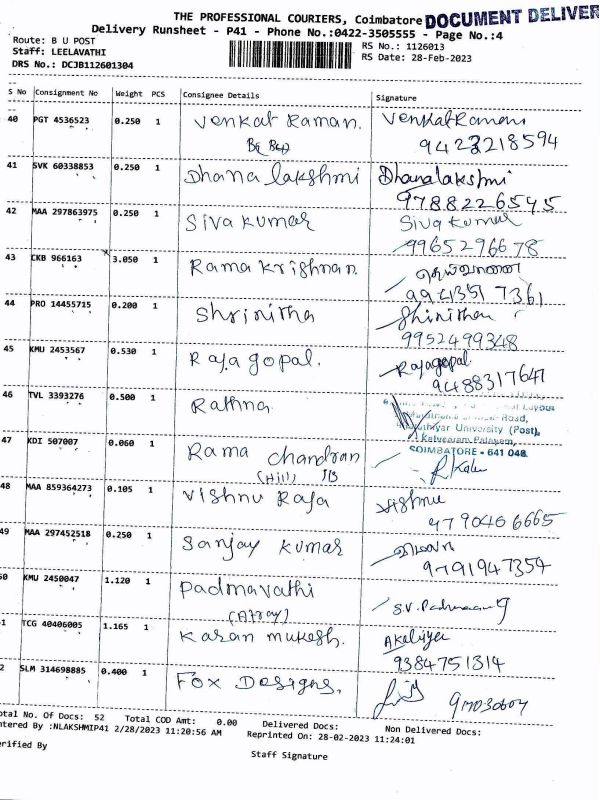 THE PROFESSIONAL COURIERS, Coimbatore DOCUMENT DELIVER
Delivery Runsheet - P41 - Phone No.:0422-3505555 - Page No.:4
Route: B U POST
RS No.: 1126013
Staff: LEELAVATHI
RS Date: 28-Feb-2023
DRS No.: DCJB112601304
S No Consignment No Weight PCS Consignee Details Signature
40 PGT 4536523 0.250 1 Venkat Raman. VenkatRaman
9422218594
41 SVK 60338853 0.250 1 Dhana lakshmi Dhanalakshmi
9788226545
42 MAA 297863975 0.250 1 Siva kumar Siva kumar
9965296678
43 CKB 966163 3.050 1 Rama krishnan தெய்வானை
44 PRO 14455715 0.200 1 Shrinitha Shrinitha
9952499348
45 KMU 2453567 0.530 1 Rajagopal. Rajagopal
9488317647
46 TVL 3393276 0.500 1 Rathna
Road,
University (Post),
47 KDI 507007 0.060 1 Rama chandran COIMBATORE - 641 046
(Hill)
48 MAA 859364273 0.105 1 Vishnu Raja Vishnu
479046 6665
49 MAA 297452518 0.250 1 Sanjay kumar
9791947354
50 KMU 2450047 1.120 1 Padmavathi S.V.
(Array)
1 TCG 40406005 1.165 1 Karan mukesh.
9384751314
2 SLM 314698885 0.400 1 Fox Designs.
otal No. Of Docs: 52 Total COD Amt: 0.00 Delivered Docs: Non Delivered Docs:
ntered By :NLAKSHMIP41 2/28/2023 11:20:56 AM Reprinted On: 28-02-2023 11:24:01
erified By
Staff Signature